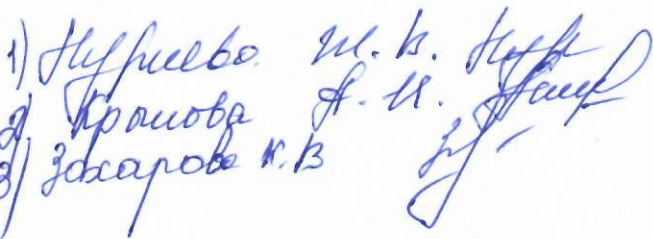 1) Нуриева Ж. В.
2) Крылова А. И.
3) Захарова К. В